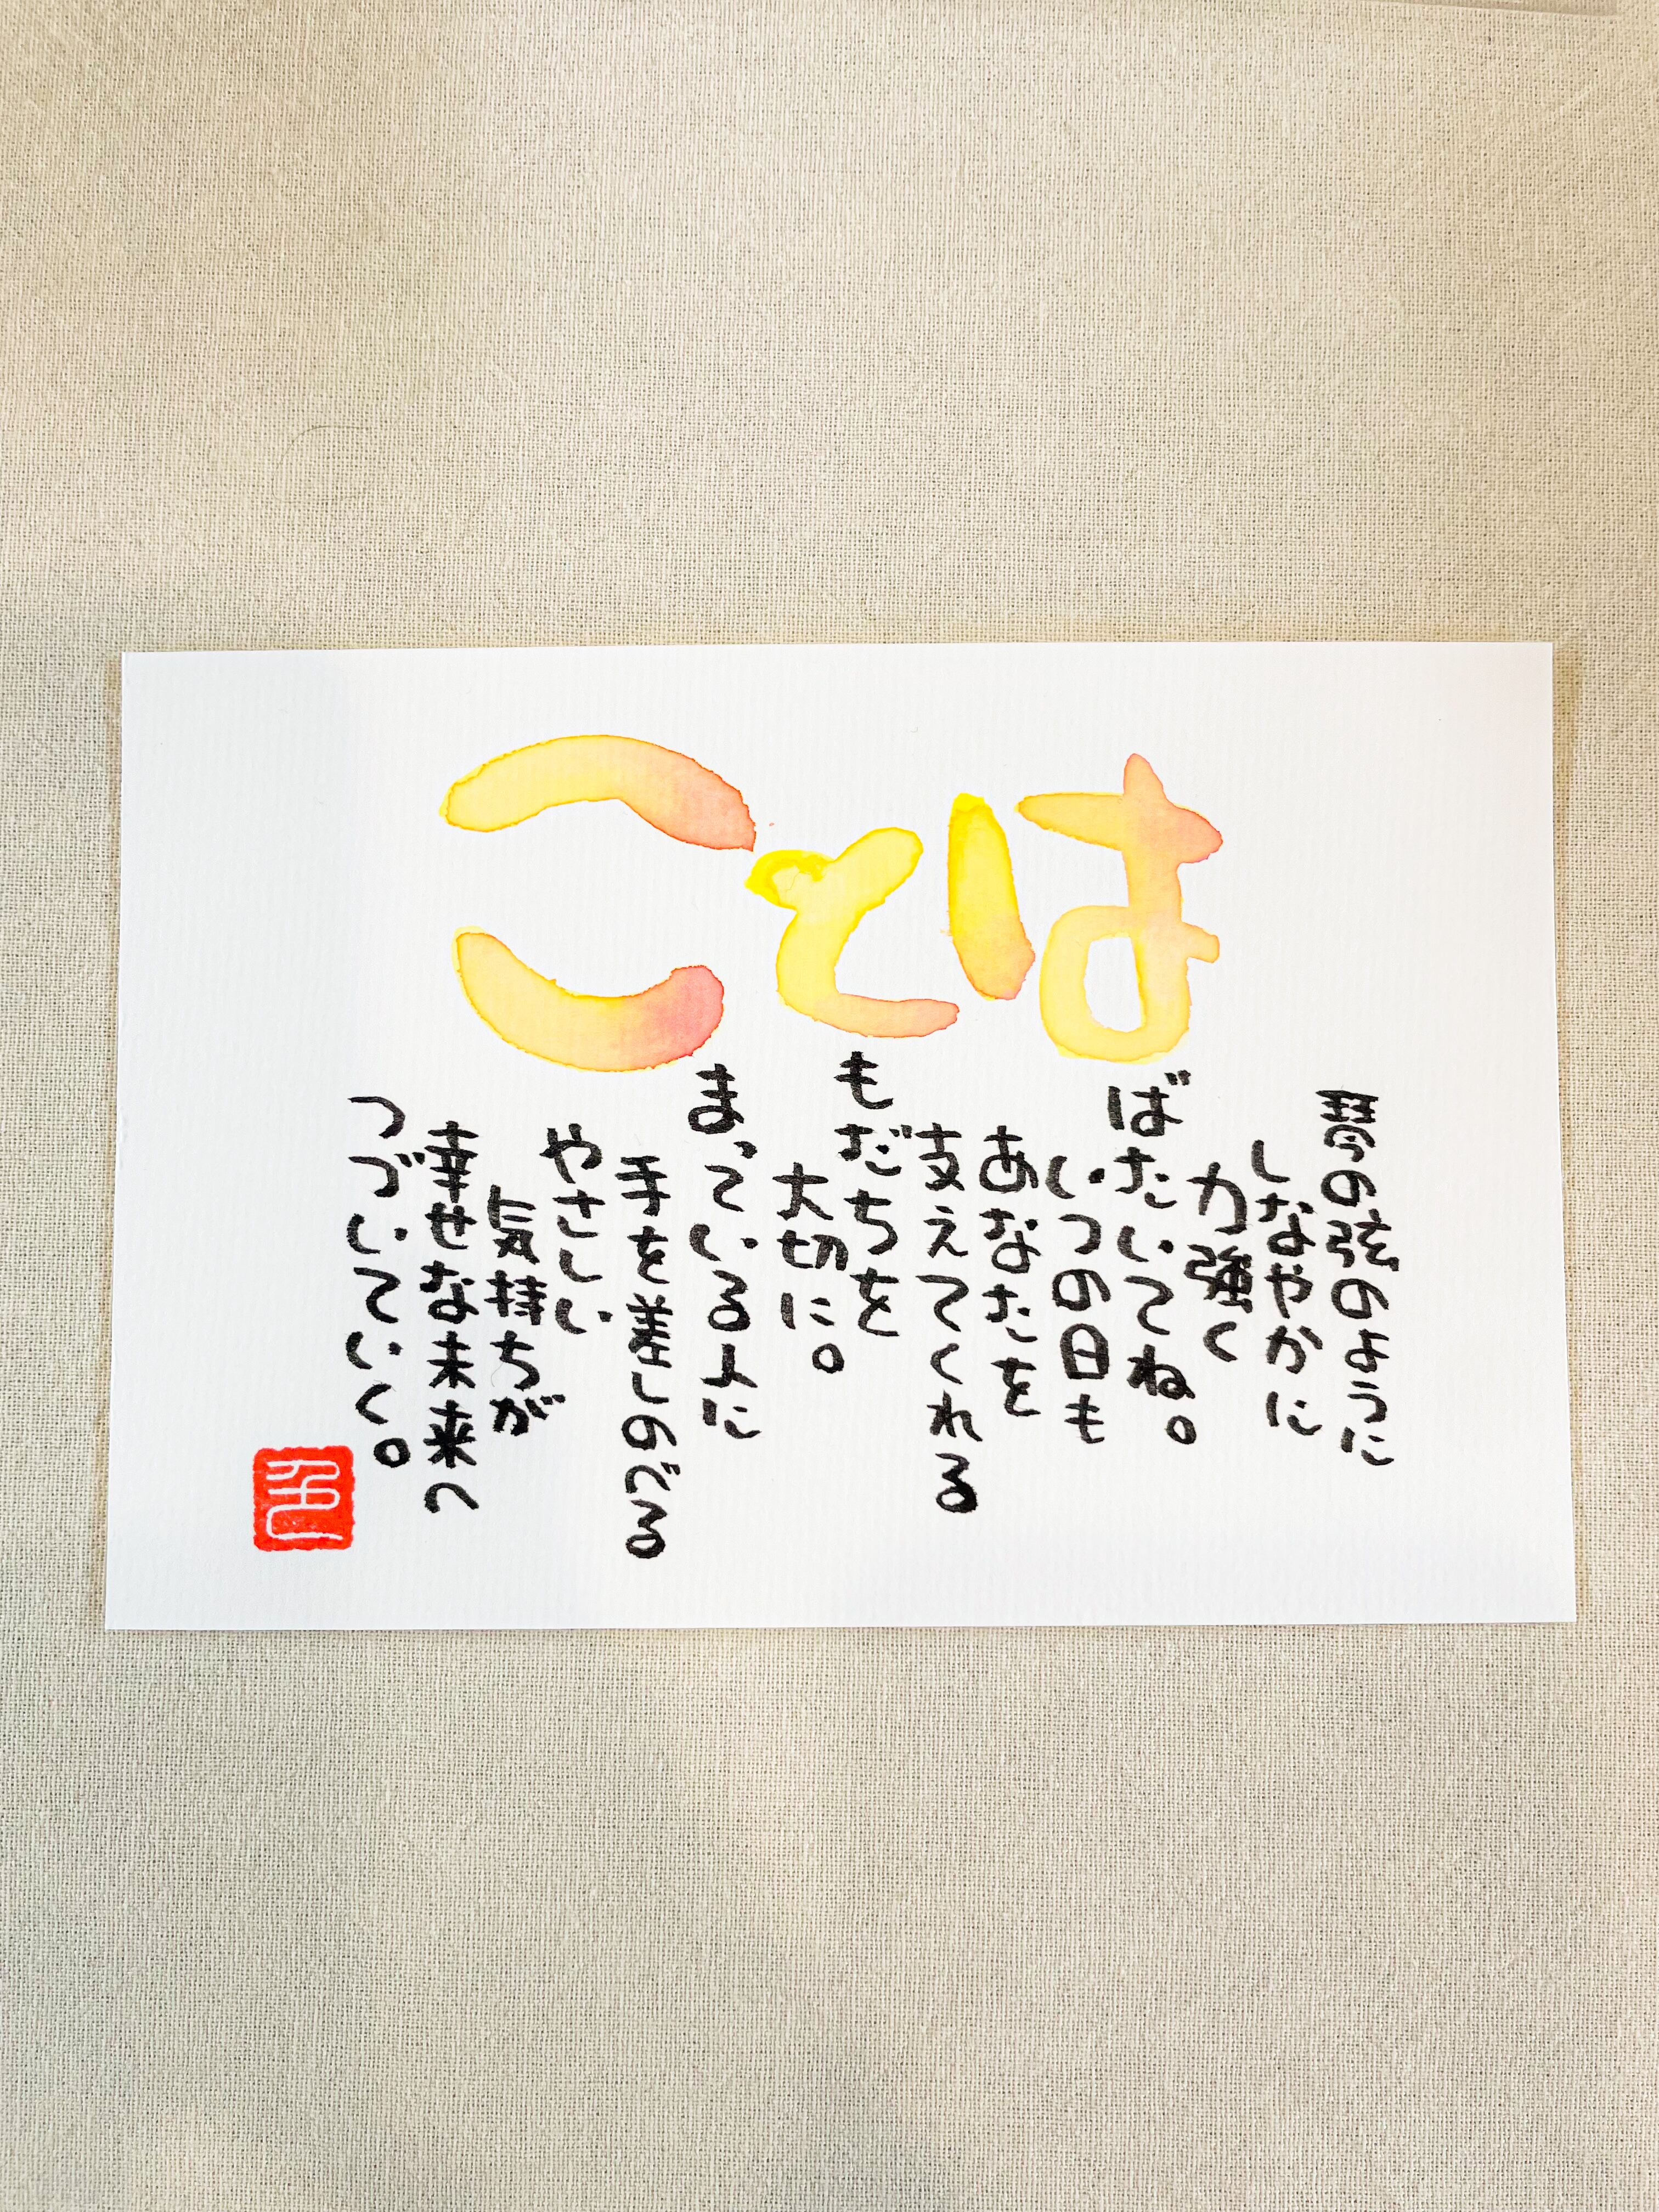 ことは
琴の弦のように
しなやかに
力強く
ばたいてね。
いつの日も
あなたを
支えてくれる
もだちを
大切に。
まっている人に
手を差しのべる
やさしい
気持ちが
幸せな未来へ
つづいていく。